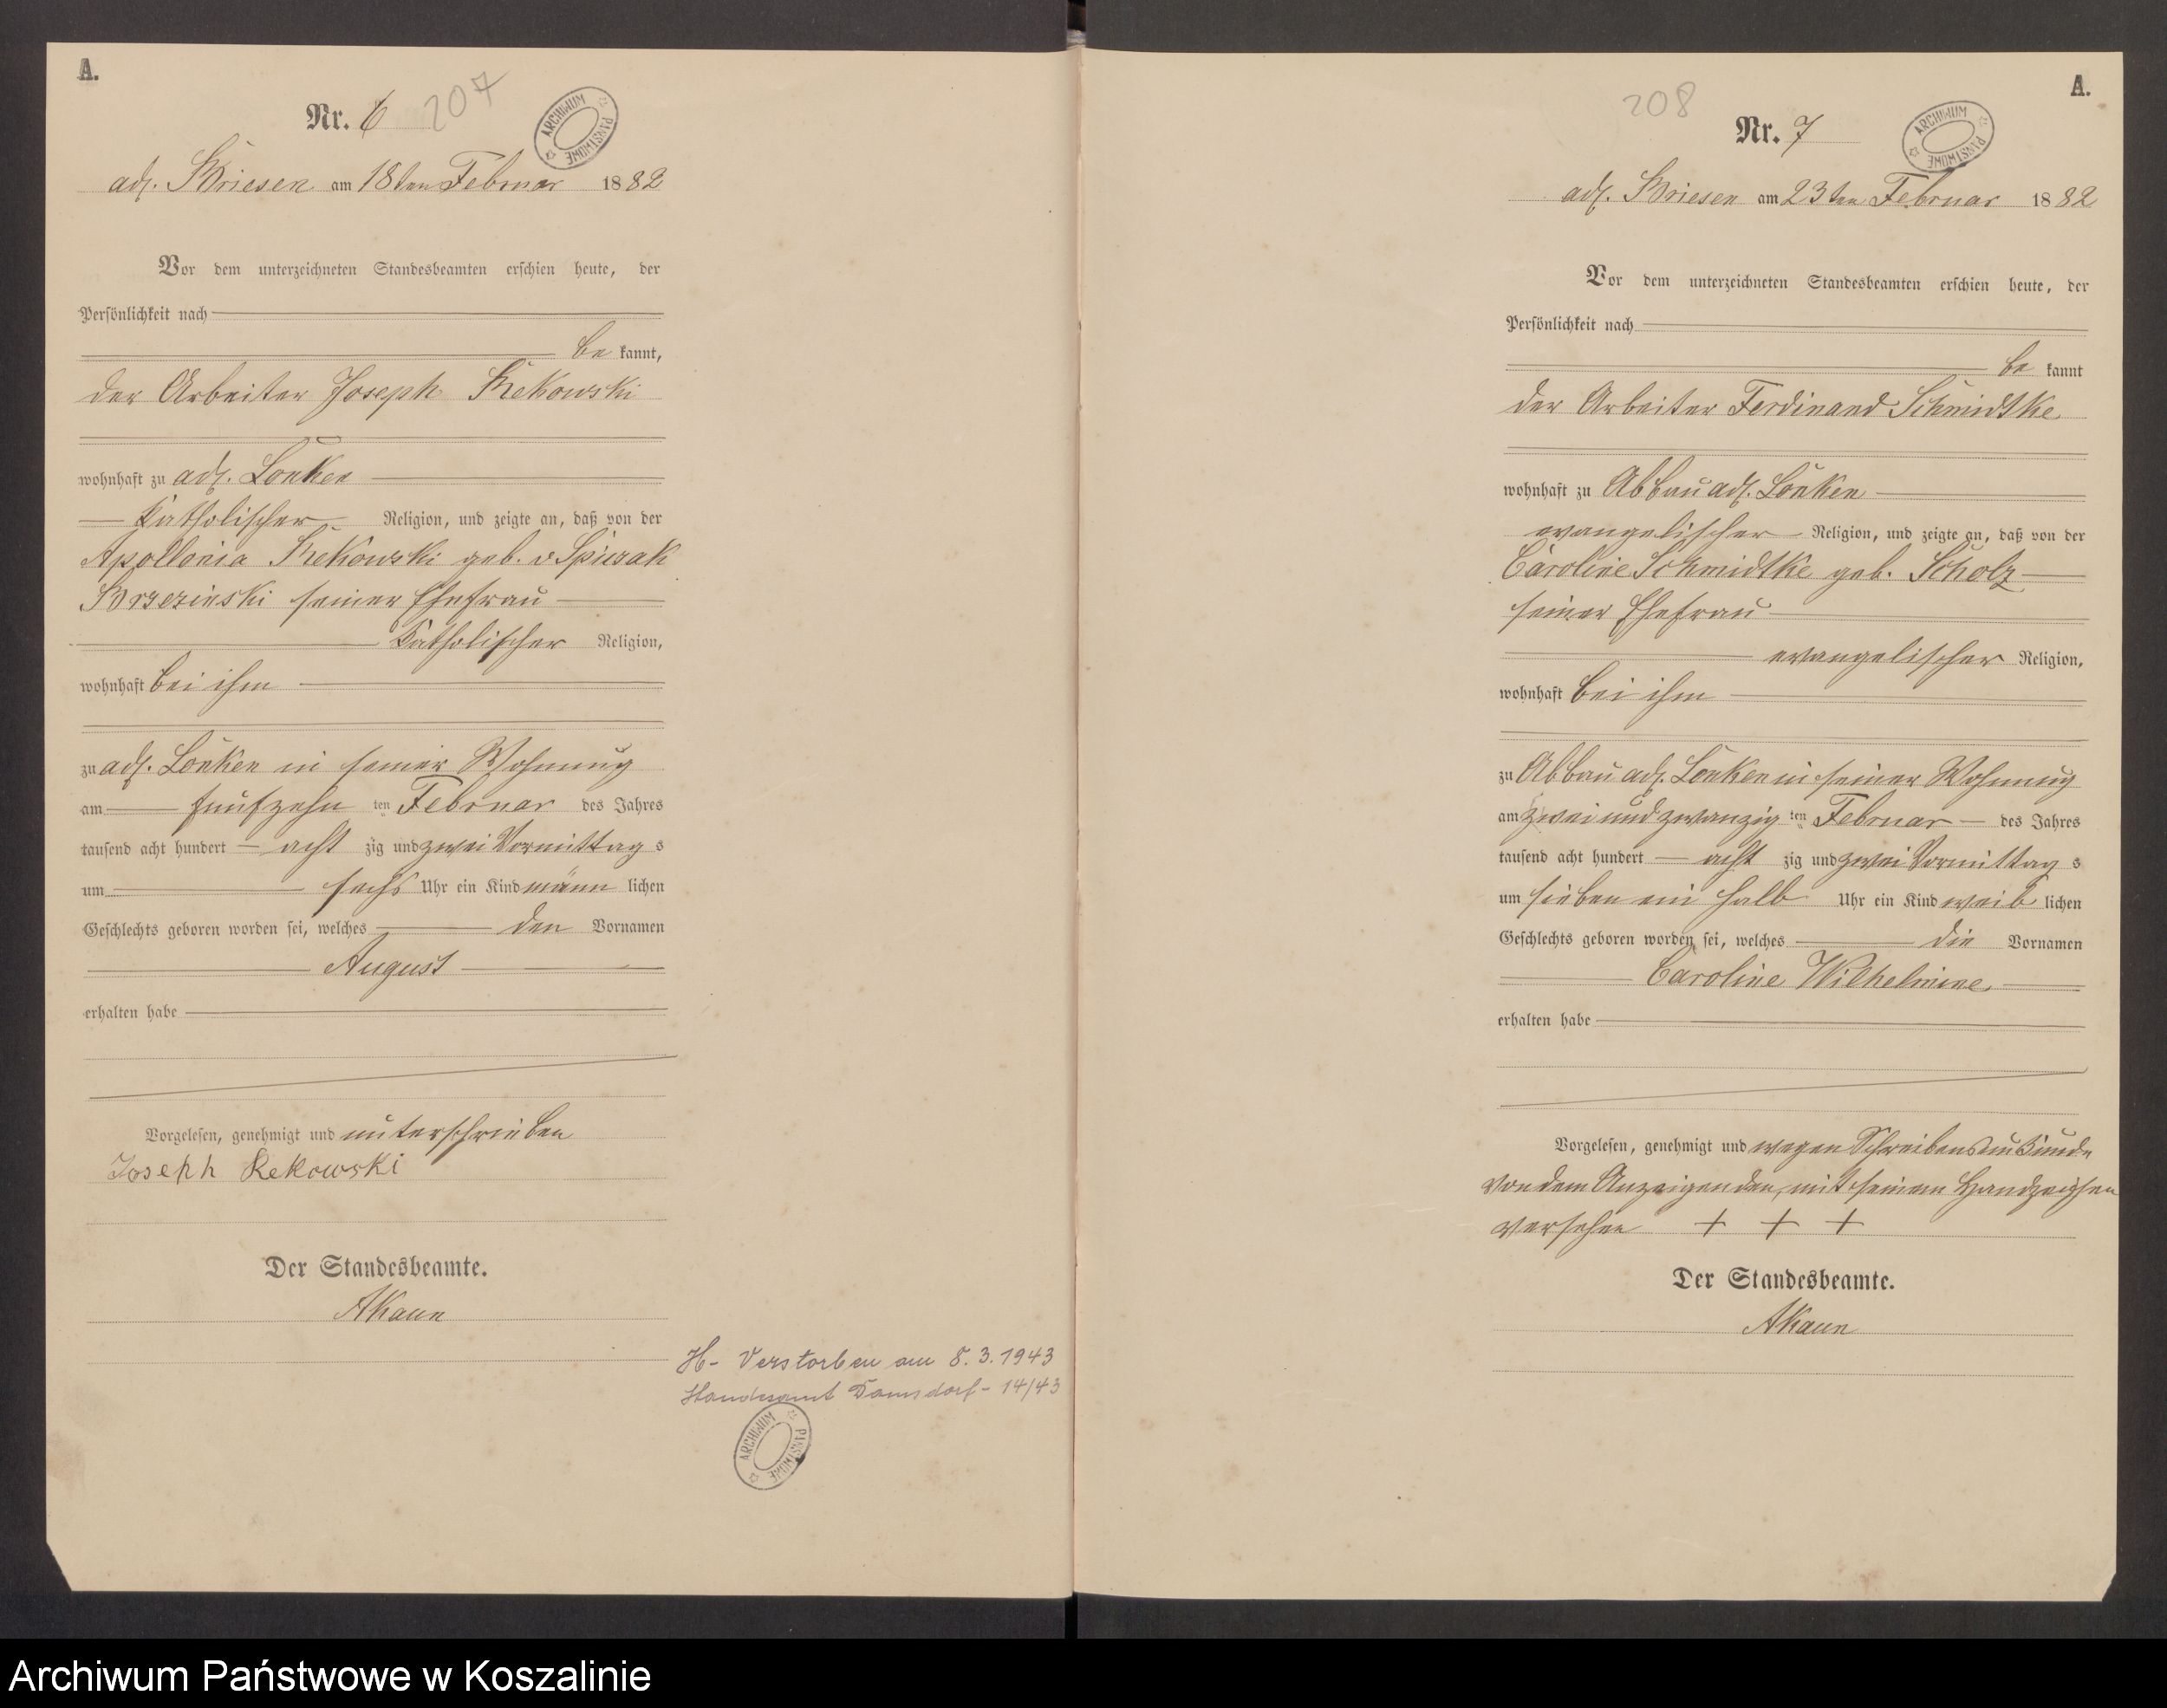 A.
Nr. 6 207
ARCHIWUM PAŃSTWOWE
adl. Briesen am 18ten Februar 1882
Vor dem unterzeichneten Standesbeamten erschien heute, der
Persönlichkeit nach
be kannt,
der Arbeiter Joseph Rekowski
wohnhaft zu adl. Lonken
katholischer Religion, und zeigte an, daß von der
Apollonia Rekowski geb. v
Brzezinski seiner Ehefrau
katholischer Religion,
wohnhaft bei ihm
zu adl. Lonken in seiner Wohnung
am fünfzehn ten Februar des Jahres
tausend acht hundert acht zig und zwei Vormittag s
um sechs Uhr ein Kind männ lichen
Geschlechts geboren worden sei, welches den Vornamen
August
erhalten habe
Vorgelesen, genehmigt und unterschrieben
Joseph Rekowski
Der Standesbeamte.
AKaun
H- Verstorben am 8.3.1943
Standesamt Damsdorf - 14/43
ARCHIWUM PAŃSTWOWE
A.
208
Nr. 7
ARCHIWUM PAŃSTWOWE
adl. Briesen am 23ten Februar 1882
Vor dem unterzeichneten Standesbeamten erschien heute, der
Persönlichkeit nach
be kannt
der Arbeiter Ferdinand Schmidtke
wohnhaft zu Abbau adl. Lonken
evangelischer Religion, und zeigte an, daß von der
Caroline Schmidtke geb. Scholz
seiner Ehefrau
evangelischer Religion,
wohnhaft bei ihm
zu Abbau adl. Lonken in seiner Wohnung
am zweiundzwanzig ten Februar des Jahres
tausend acht hundert acht zig und zwei Vormittag s
um sieben ein halb Uhr ein Kind weib lichen
Geschlechts geboren worden sei, welches die Vornamen
Caroline Wilhelmine
erhalten habe
Vorgelesen, genehmigt und wegen Schreibensunkunde
von dem Anzeigenden, mit seinem Handzeichen
versehen + + +
Der Standesbeamte.
AKaun
Archiwum Państwowe w Koszalinie